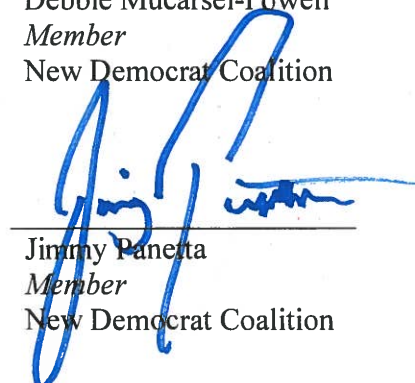 Debbie Mucarsel-Powell
Member
New Democrat Coalition
Jimmy Panetta
Jimmy Panetta
Member
New Democrat Coalition